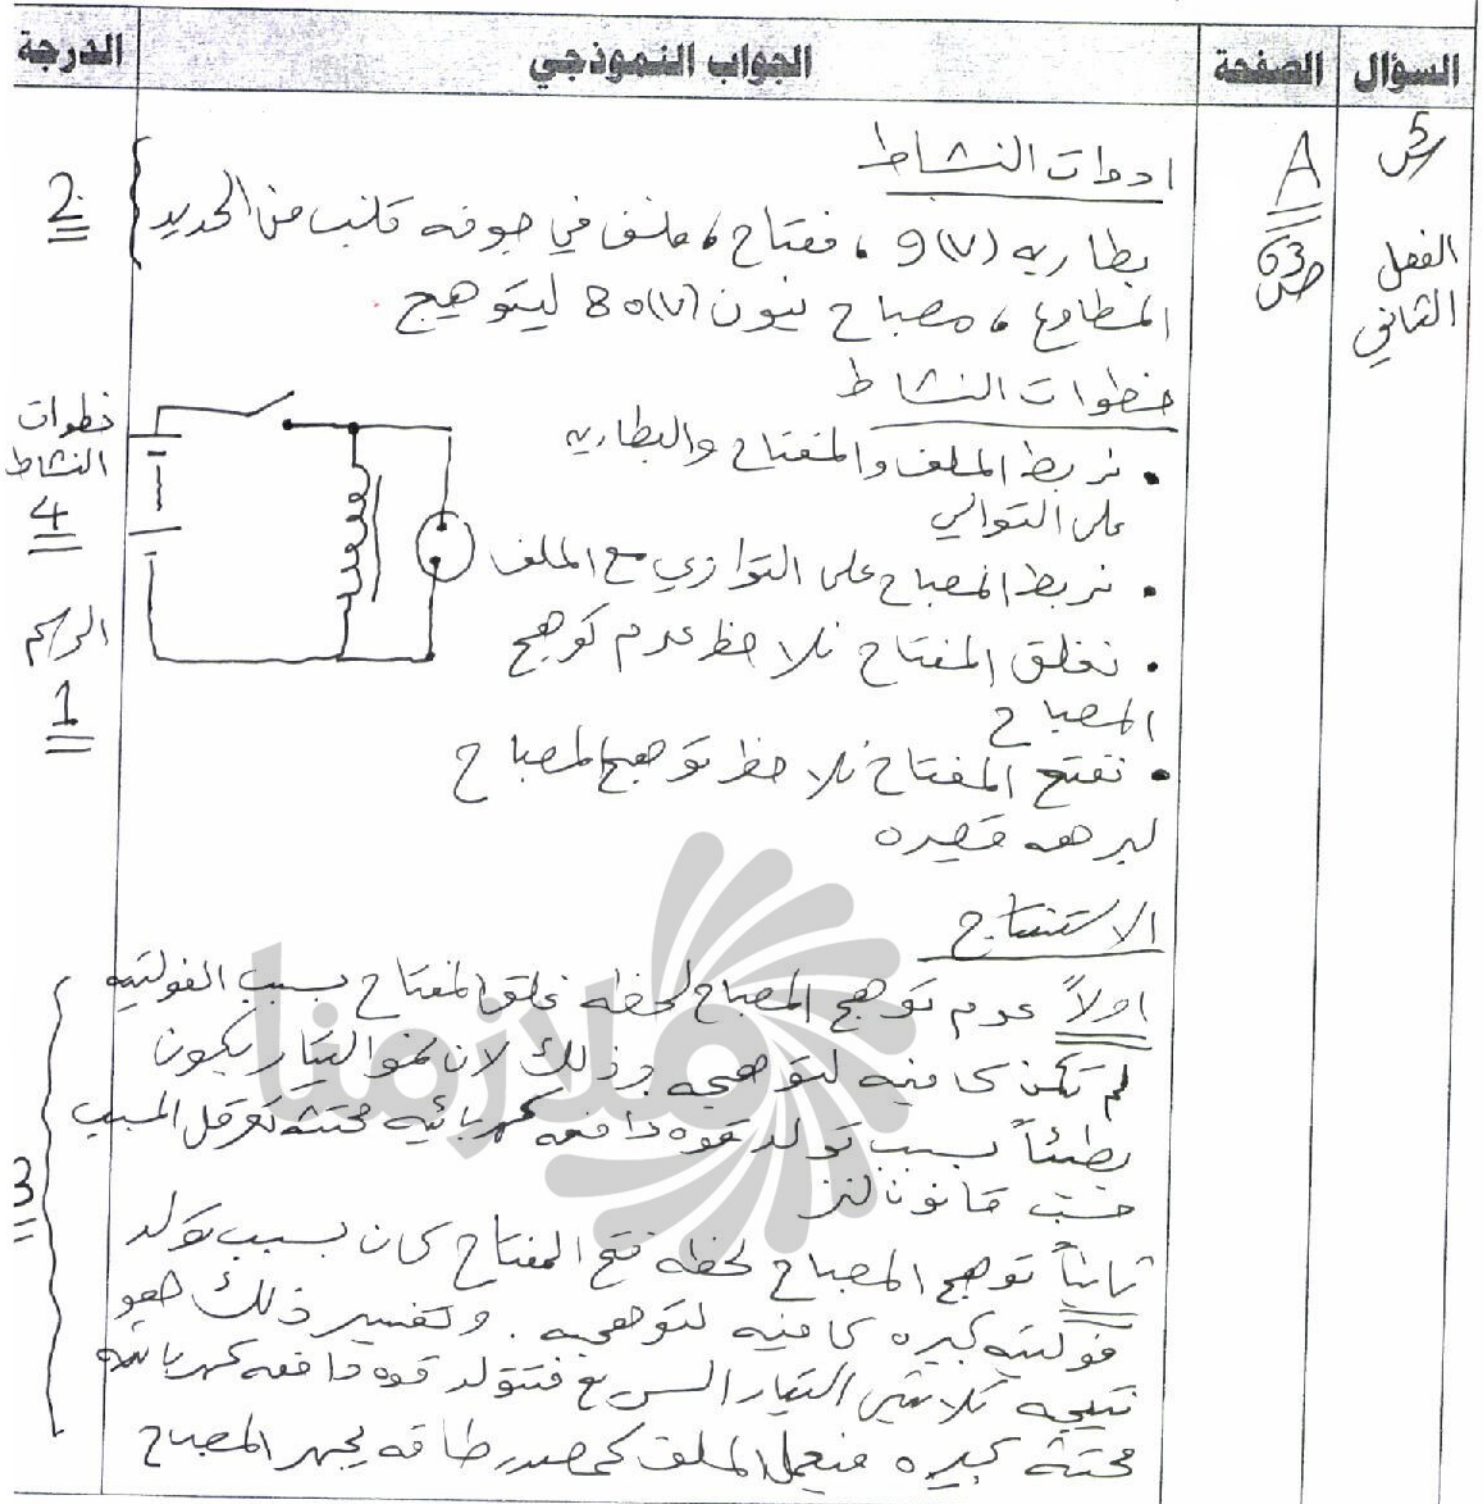 السؤال الصفحة الجواب النموذجي الدرجة
س5
الفصل
الثاني
A
ص63
ادوات النشاط
بطاريه 9(V) ، مفتاح ، ملف في جوفه قلب من الحديد
المطاوع ، مصباح نيون 80(V) ليتوهج
2
خطوات النشاط
• نربط الملف والمفتاح والبطاريه
على التوالي
• نربط المصباح على التوازي مع الملف
• نغلق المفتاح نلاحظ عدم توهج
المصباح
• نفتح المفتاح نلاحظ توهج المصباح
لبرهه قصيره
خطوات
النشاط
4
الرسم
1
الاستنتاج
اولاً عدم توهج المصباح لحظه غلق المفتاح بسبب الفولتيه
لم تكن كافيه لتوهجه وذلك لان نمو التيار يكون
بطيئاً بسبب تولد قوه دافعه كهربائيه محتثه تعرقل المسبب
حسب قانون لنز
ثانياً توهج المصباح لحظه فتح المفتاح كان بسبب تولد
فولتيه كبيره كافيه لتوهجه . وتفسير ذلك هو
نتيجه تلاشي التيار السريع فتتولد قوه دافعه كهربائيه
محتثه كبيره فيعمل الملف كمصدر طاقه يجهز المصباح
3
ملازمنا